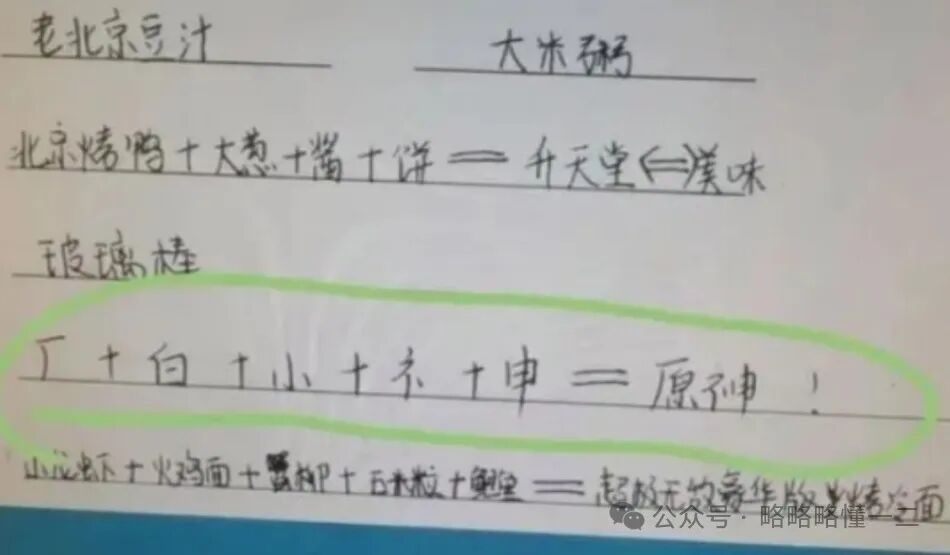 老北京豆汁 大米粥
北京烤鸭+大葱+酱+饼=升天堂(=)美味
玻璃棒
厂+白+小+礻+申=原神!
小龙虾+火鸡面+蟹柳+玉米粒+鲍鱼=超级无敌豪华版烤冷面
公众号·略略略懂一三